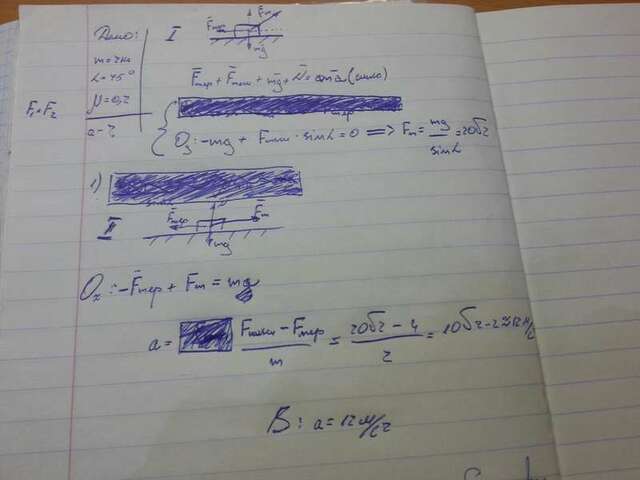 Дано:
I
m=2кг
α=45°
μ=0,2
F₁=F₂
a-?
F̄тр
F̄т
mḡ
F̄тер + F̄тяги + mḡ + N̄ = 0
Oy: -mg + Fтяги · sinα = 0 => Fт = mg/sinα = 20√2
1)
II
F̄тер
F̄т
mḡ
Ox: -F̄тер + Fт = ma
a = (Fтяги - Fтер)/m = (20√2 - 4)/2 = 10√2 - 2 ≈ 12 м/с²
В: a = 12 м/с²